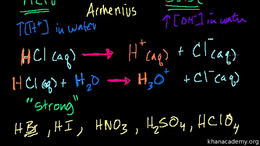 Arrhenius
↑[H⁺] in water
↑[OH⁻] in water
HCl(aq) → H⁺(aq) + Cl⁻(aq)
HCl(aq) + H₂O → H₃O⁺ + Cl⁻(aq)
"strong"
HBr, HI, HNO₃, H₂SO₄, HClO₄
khanacademy.org